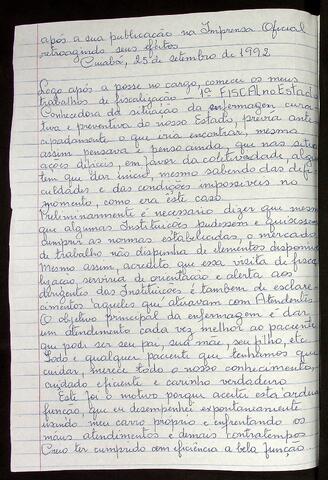 após a sua publicação na Imprensa Oficial
retroagindo seus efeitos.
Cuiabá, 25 de setembro de 1992
Logo após a posse no cargo, comecei os meus
trabalhos de fiscalização - 1ª FISCAL no Estado
Conhecedora da situação da enfermagem cura-
tiva e preventiva do nosso Estado, previa ante-
cipadamente o que iria encontrar, mesmo
assim pensava e penso ainda, que nas situa
ções difíceis, em favor da coletividade, alguém
tem que dar início, mesmo sabendo das difi-
culdades e das condições impossíveis no
momento, como era este caso.
Preliminarmente é necessário dizer que mesmo
que algumas Instituições pudessem e quisessem
cumprir as normas estabelecidas, o mercado
de trabalho não dispunha de elementos disponíveis
Mesmo assim, acredito que essa visita de fisca-
lização, serviria de orientação e alerta aos
dirigentes das Instituições e também de esclare-
cimentos àqueles que atuavam com Atendentes.
O objetivo principal da enfermagem é dar
um atendimento cada vez melhor ao paciente
que pode ser seu pai, sua mãe, seu filho, etc.
Todo e qualquer paciente que tenhamos que
cuidar, merece todo o nosso conhecimento,
cuidado eficiente e carinho verdadeiro
Este foi o motivo porque aceitei esta árdua
função, que eu desempenhei expontaneamente
usando meu carro próprio e enfrentando os
maus atendimentos e demais contratempos
Creio ter cumprido com eficiência a bela função...